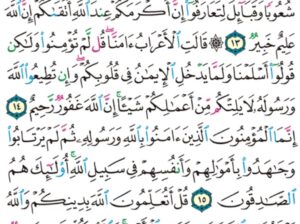 شُعُوبًا وَقَبَآئِلَ لِتَعَارَفُوٓا۟ إِنَّ أَكْرَمَكُمْ عِندَ ٱللَّهِ أَتْقَىٰكُمْ إِنَّ ٱللَّهَ
عَلِيمٌ خَبِيرٌ ١٣ ۞ قَالَتِ ٱلْأَعْرَابُ ءَامَنَّا قُل لَّمْ تُؤْمِنُوا۟ وَلَٰكِن
قُولُوٓا۟ أَسْلَمْنَا وَلَمَّا يَدْخُلِ ٱلْإِيمَٰنُ فِى قُلُوبِكُمْ وَإِن تُطِيعُوا۟ ٱللَّهَ
وَرَسُولَهُۥ لَا يَلِتْكُم مِّنْ أَعْمَٰلِكُمْ شَيْـًٔا إِنَّ ٱللَّهَ غَفُورٌ رَّحِيمٌ ١٤
إِنَّمَا ٱلْمُؤْمِنُونَ ٱلَّذِينَ ءَامَنُوا۟ بِٱللَّهِ وَرَسُولِهِۦ ثُمَّ لَمْ يَرْتَابُوا۟
وَجَٰهَدُوا۟ بِأَمْوَٰلِهِمْ وَأَنفُسِهِمْ فِى سَبِيلِ ٱللَّهِ أُو۟لَٰٓئِكَ هُمُ
ٱلصَّٰدِقُونَ ١٥ قُلْ أَتُعَلِّمُونَ ٱللَّهَ بِدِينِكُمْ وَٱللَّهُ